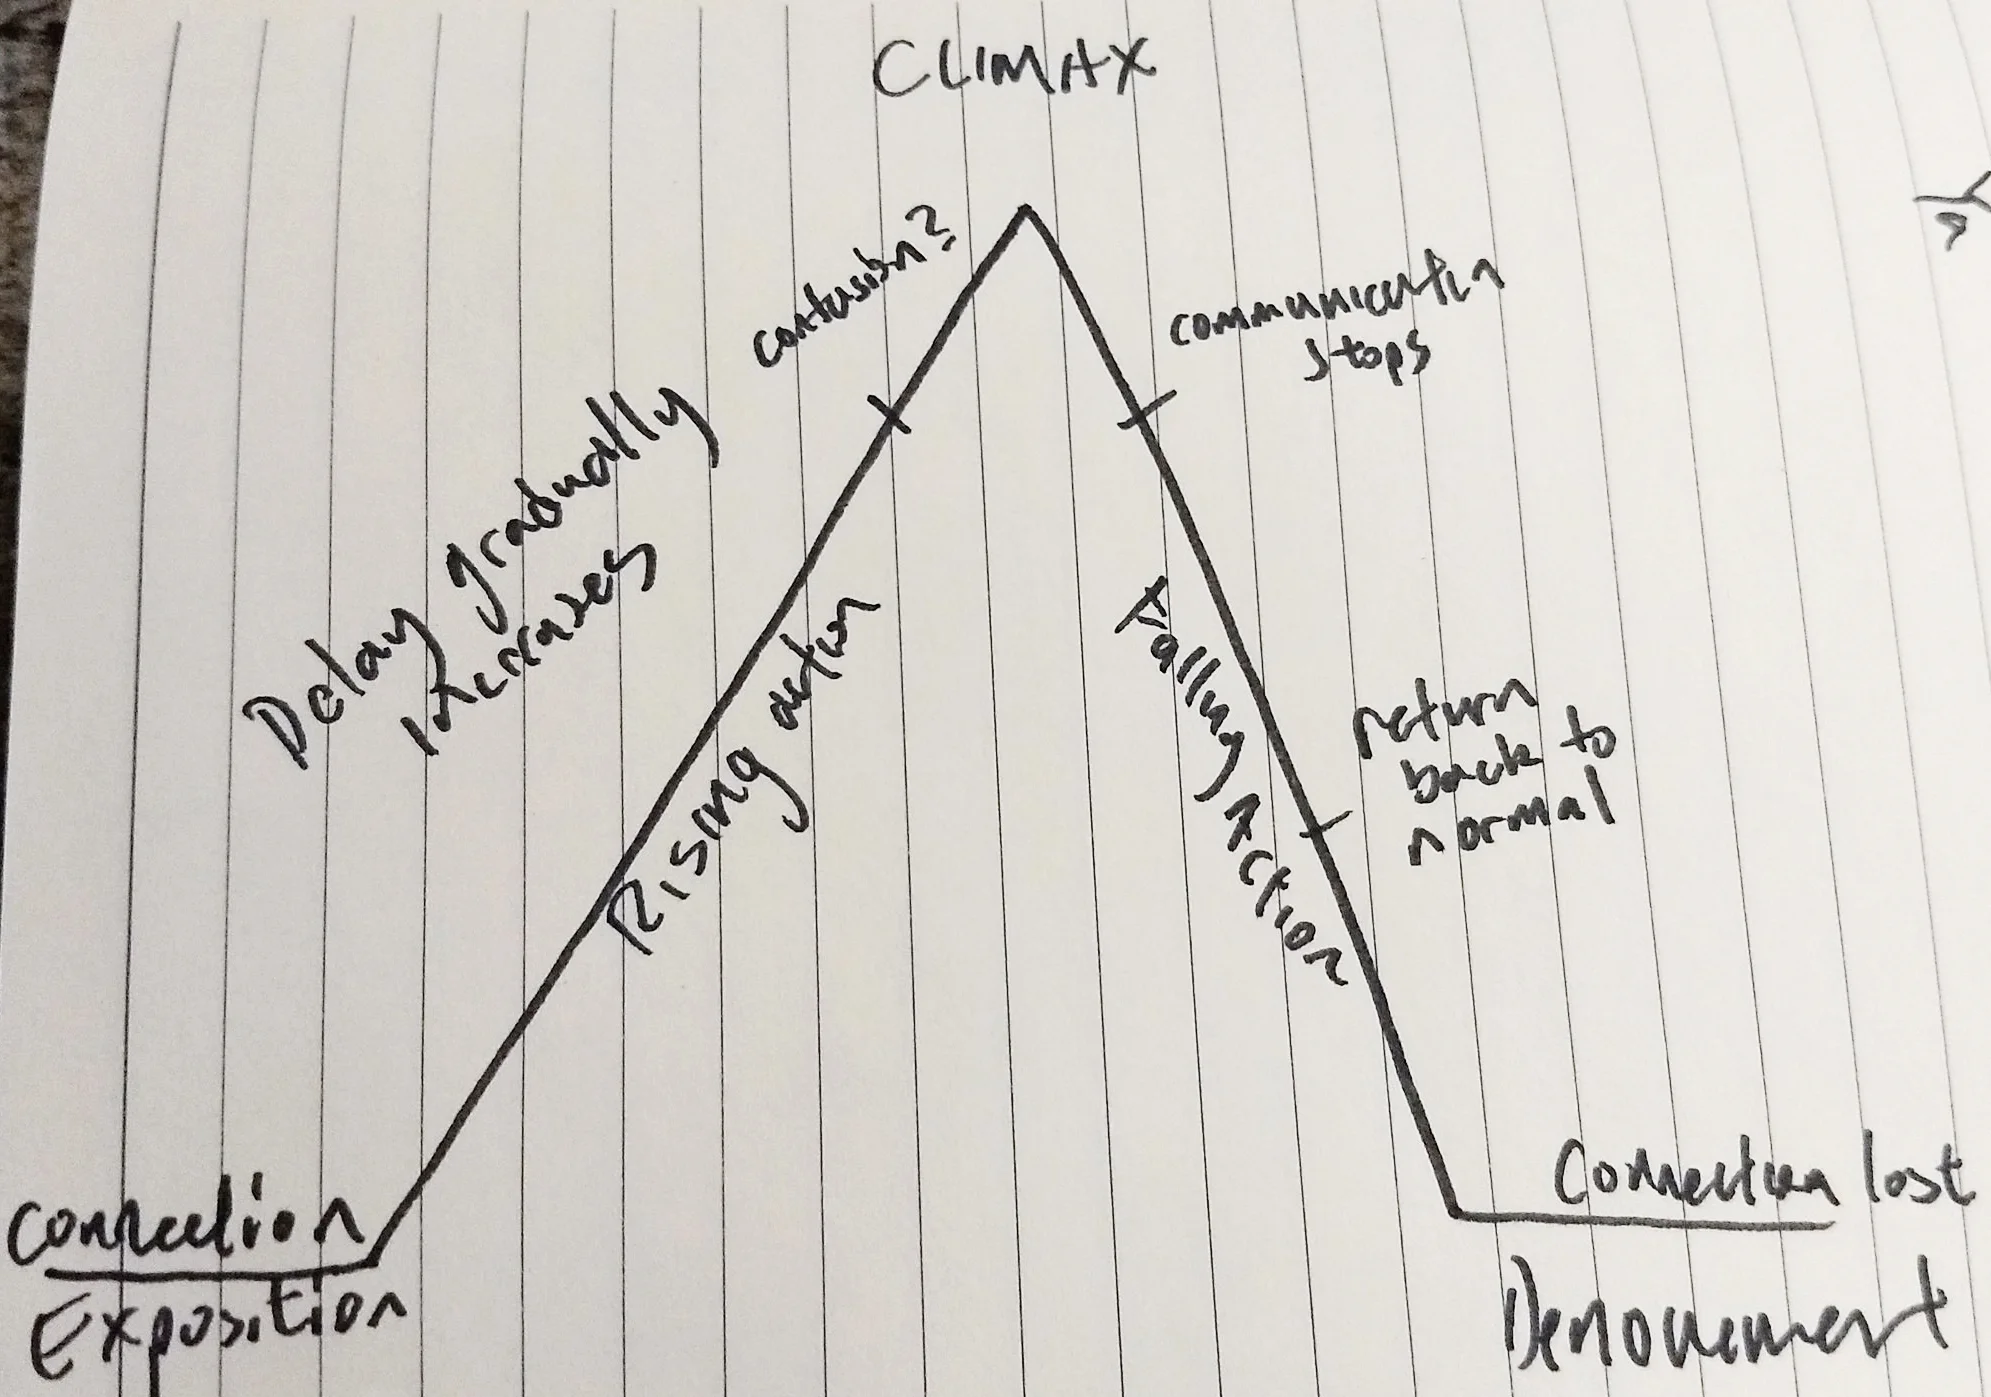 CLIMAX
confusion?
communication
stops
Delay gradually
increases
Rising action
Falling Action
return
back to
normal
Connection
Exposition
Connection lost
Denouement